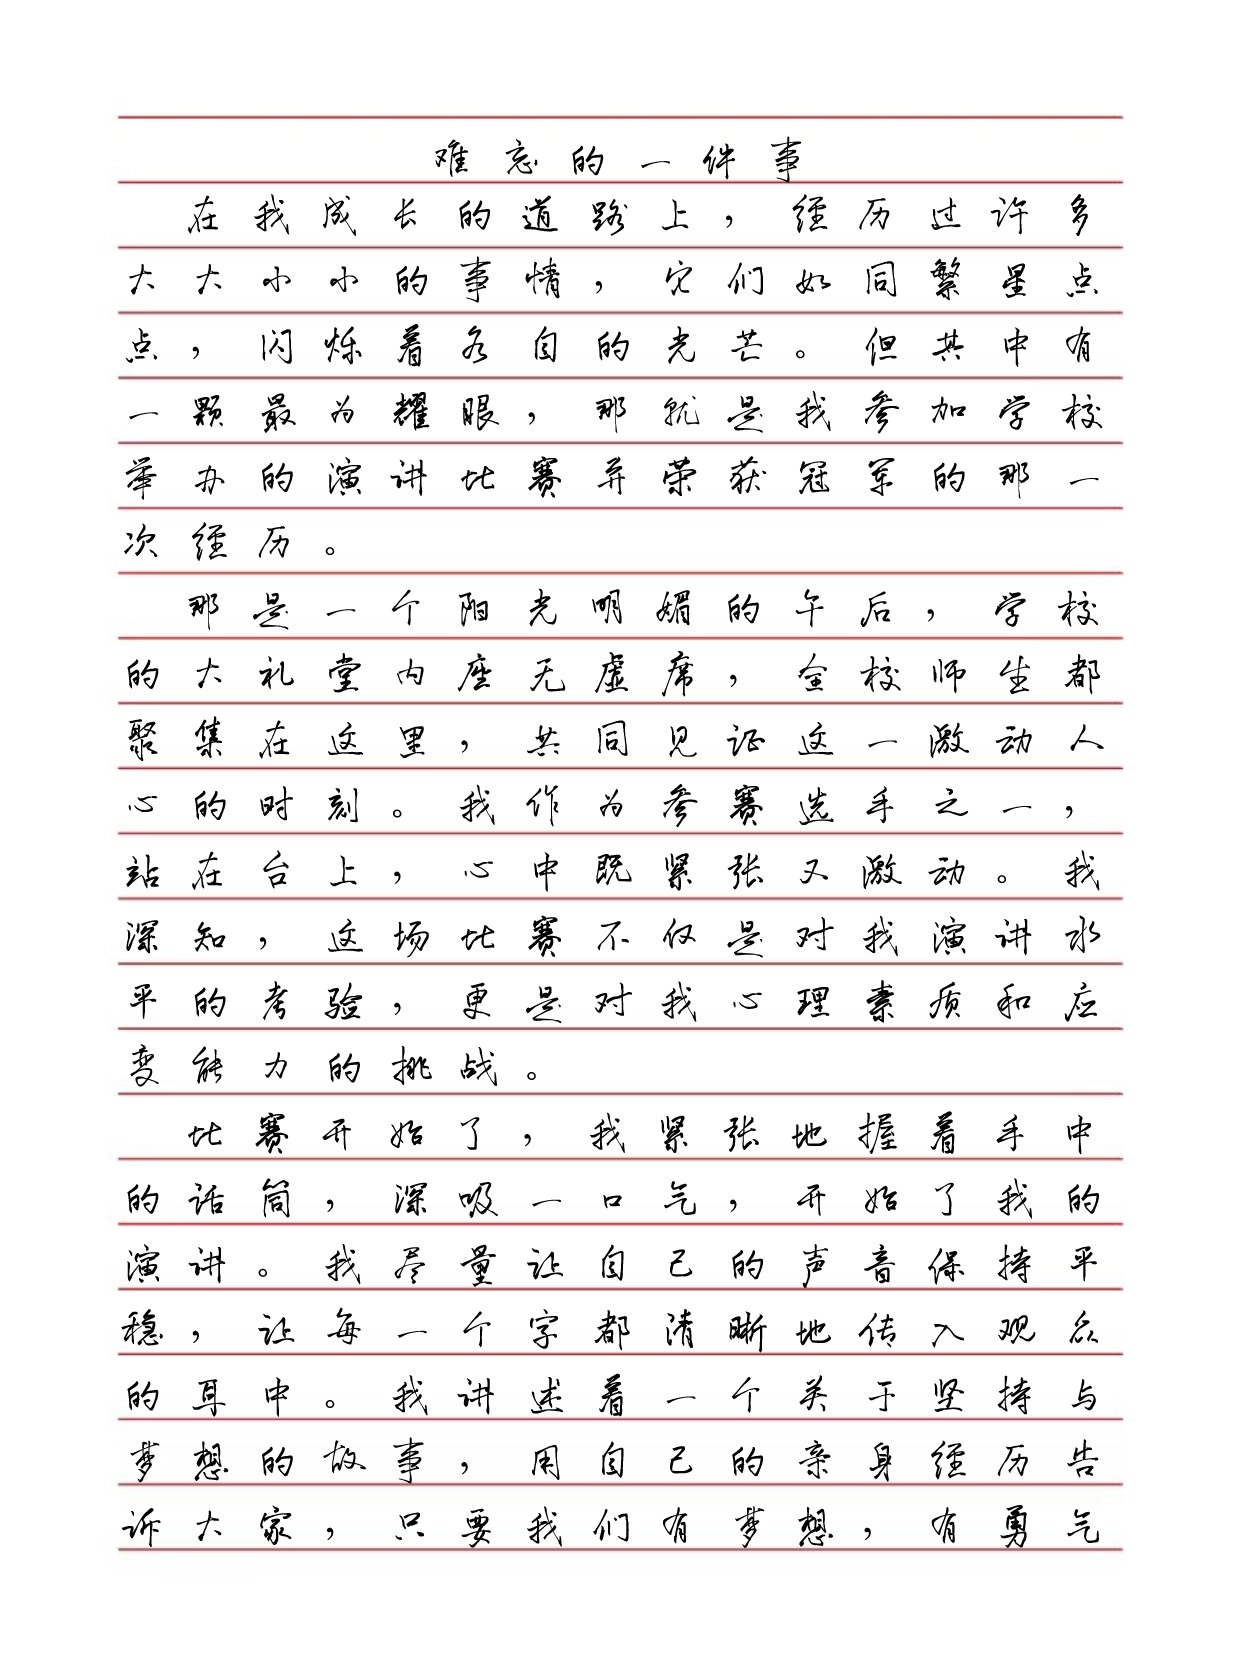 难忘的一件事
在我成长的道路上，经历过许多
大大小小的事情，它们如同繁星点
点，闪烁着各自的光芒。但其中有
一颗最为耀眼，那就是我参加学校
举办的演讲比赛并荣获冠军的那一
次经历。
那是一个阳光明媚的午后，学校
的大礼堂内座无虚席，全校师生都
聚集在这里，共同见证这一激动人
心的时刻。我作为参赛选手之一，
站在台上，心中既紧张又激动。我
深知，这场比赛不仅是对我演讲水
平的考验，更是对我心理素质和应
变能力的挑战。
比赛开始了，我紧张地握着手中
的话筒，深吸一口气，开始了我的
演讲。我尽量让自己的声音保持平
稳，让每一个字都清晰地传入观众
的耳中。我讲述着一个关于坚持与
梦想的故事，用自己的亲身经历告
诉大家，只要我们有梦想，有勇气